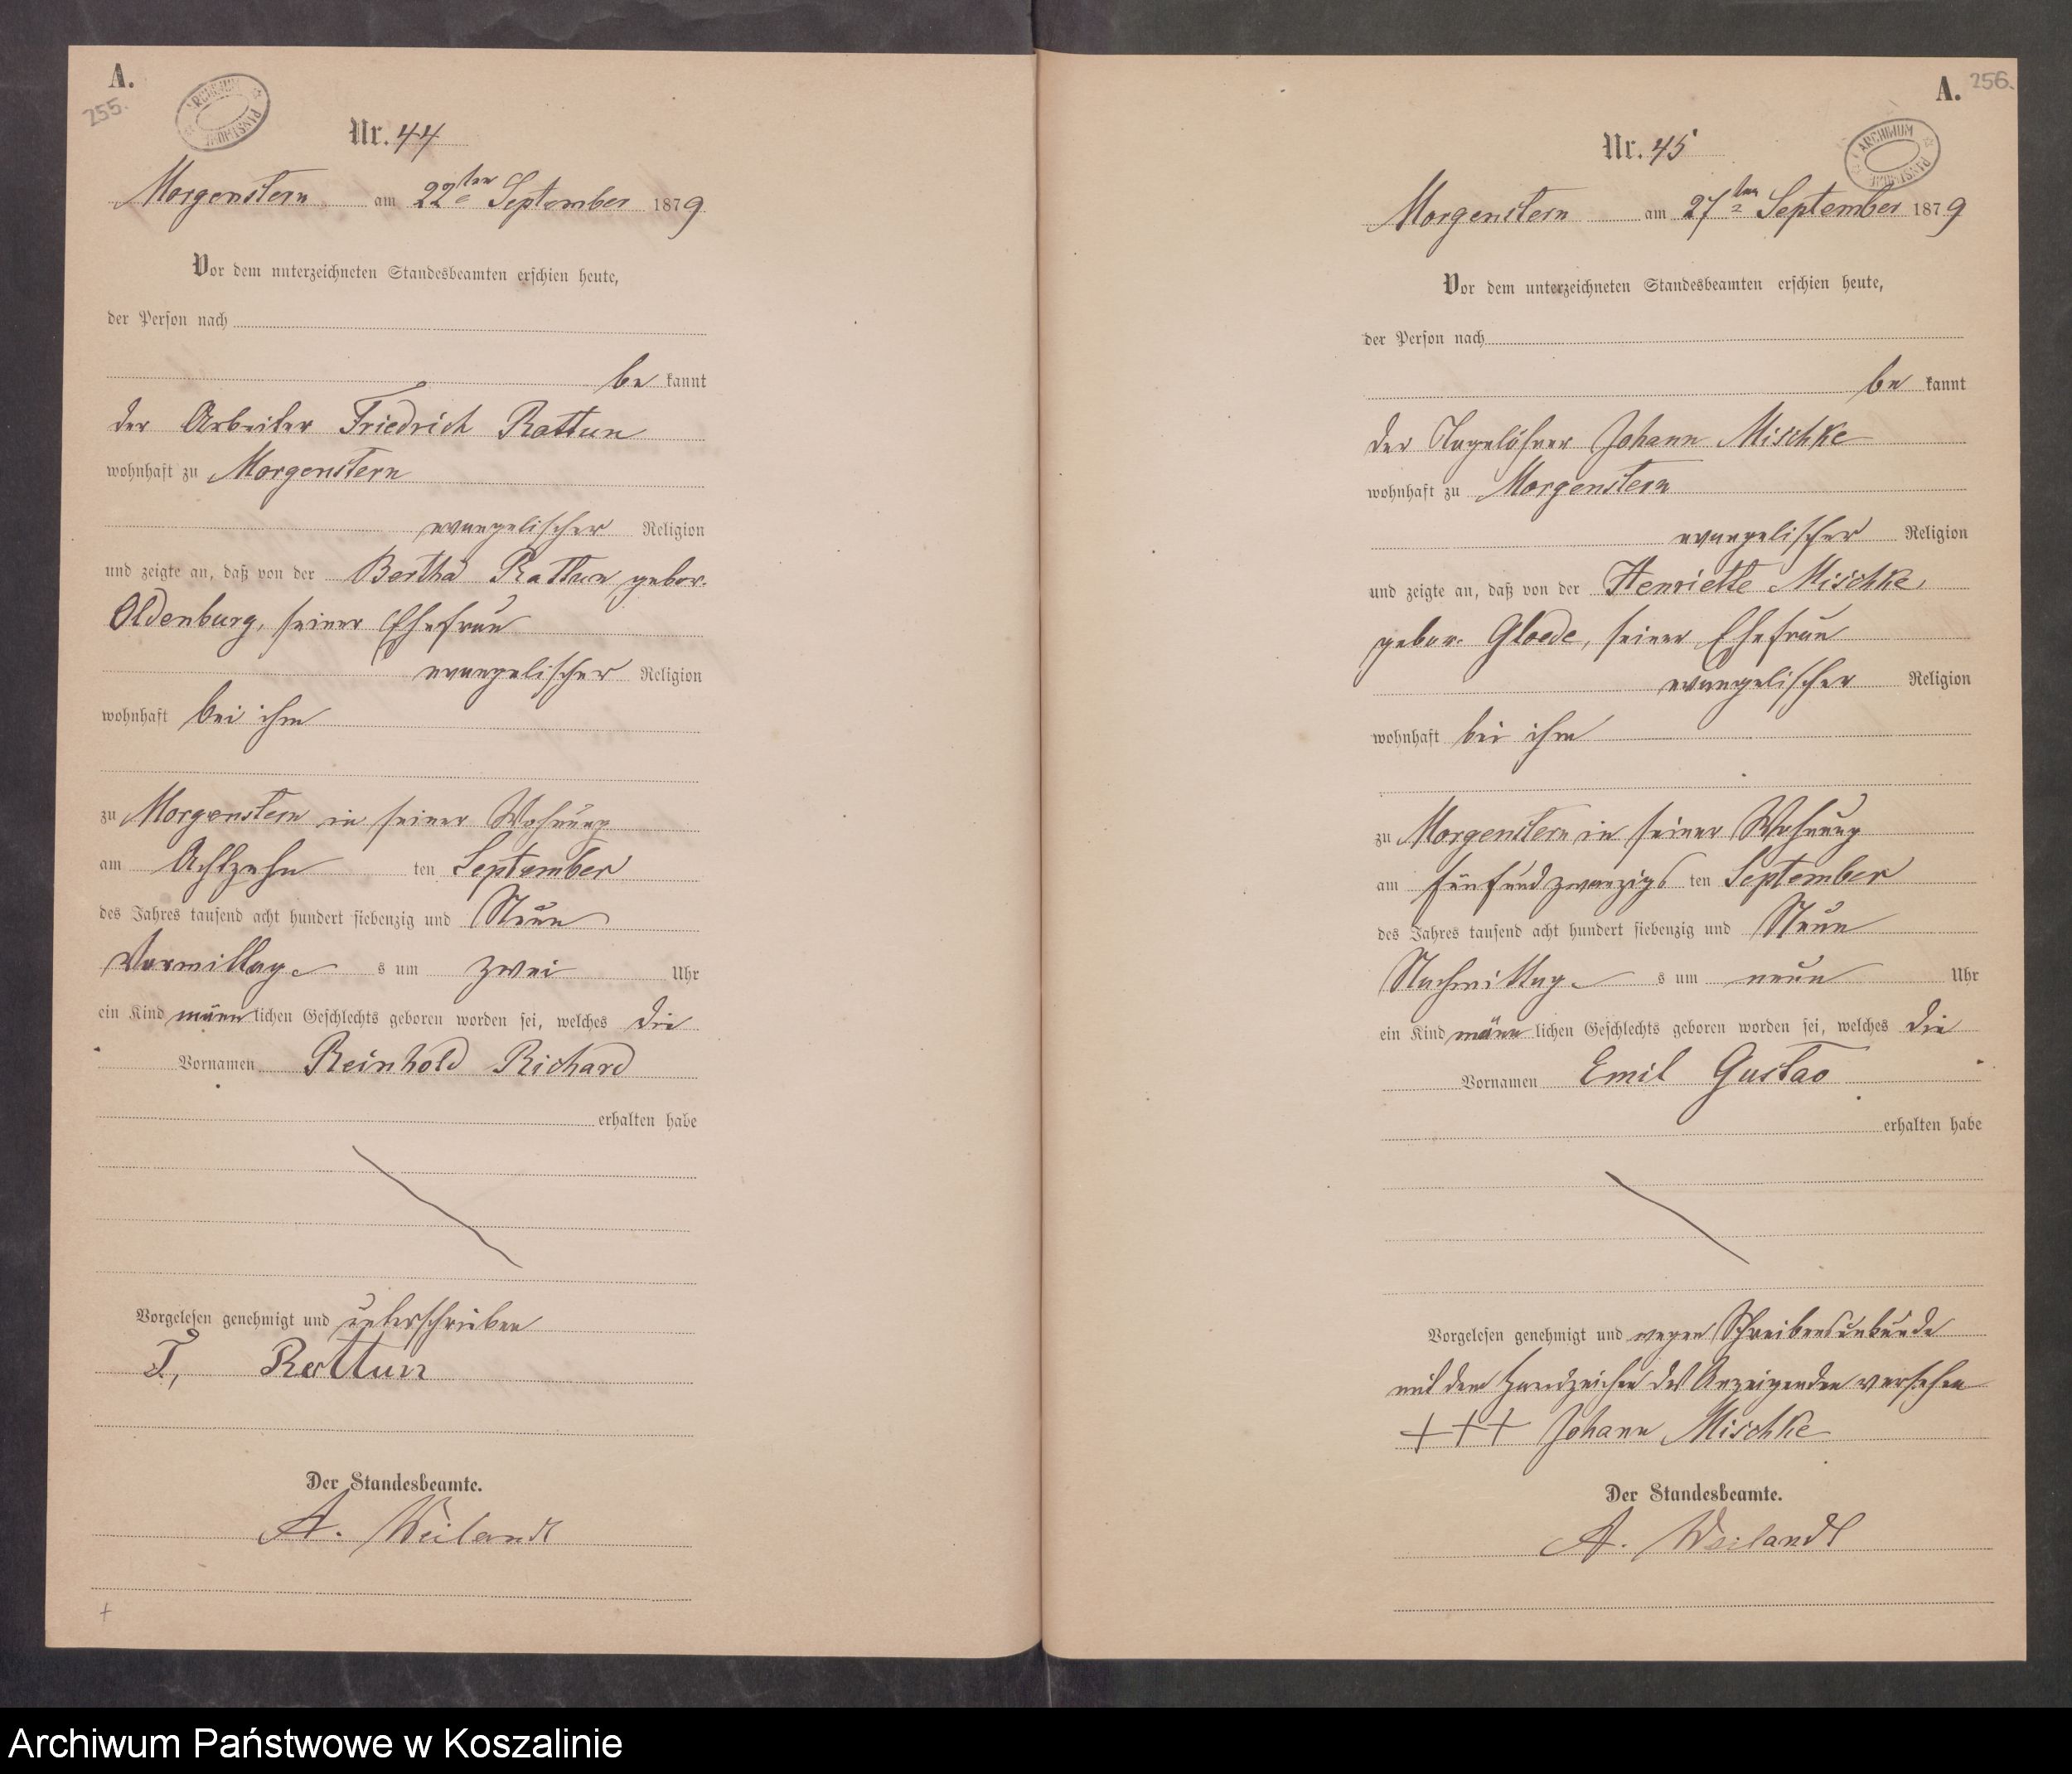 A.
255.
ARCHIWUM PAŃSTWOWE
Nr. 44
Morgenstern am 22ten September 1879
Vor dem unterzeichneten Standesbeamten erschien heute,
der Person nach
be kannt
der Arbeiter Friedrich Rattun
wohnhaft zu Morgenstern
evangelischer Religion
und zeigte an, daß von der Bertha Rattun, gebor.
Oldenburg, seiner Ehefrau
evangelischer Religion
wohnhaft bei ihm
zu Morgenstern in seiner Wohnung
am Achtzehn ten September
des Jahres tausend acht hundert siebenzig und Neun
Vormittag s um zwei Uhr
ein Kind männ lichen Geschlechts geboren worden sei, welches die
Vornamen Reinhold Richard
erhalten habe
Vorgelesen genehmigt und unterschrieben
F, Rattun
Der Standesbeamte.
A. Weilandt
A. 256.
ARCHIWUM PAŃSTWOWE
Nr. 45
Morgenstern am 27ten September 1879
Vor dem unterzeichneten Standesbeamten erschien heute,
der Person nach
be kannt
der Tagelöhner Johann Mischke
wohnhaft zu Morgenstern
evangelischer Religion
und zeigte an, daß von der Henriette Mischke,
gebor. Gloede, seiner Ehefrau
evangelischer Religion
wohnhaft bei ihm
zu Morgenstern in seiner Wohnung
am fünfundzwanzigs ten September
des Jahres tausend acht hundert siebenzig und Neun
Nachmittag s um neun Uhr
ein Kind männ lichen Geschlechts geboren worden sei, welches die
Vornamen Emil Gustav
erhalten habe
Vorgelesen genehmigt und wegen Schreibensunkunde
mit dem Handzeichen des Anzeigenden versehen
+++ Johann Mischke
Der Standesbeamte.
A. Weilandt
Archiwum Państwowe w Koszalinie